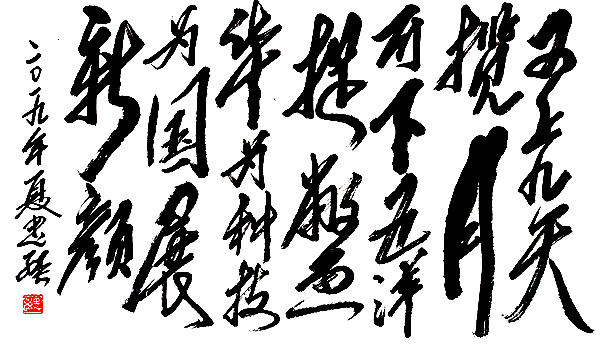 可上九天
揽月
可下五洋
捉鳖
华为科技
为国展
新颜
二〇一九年夏